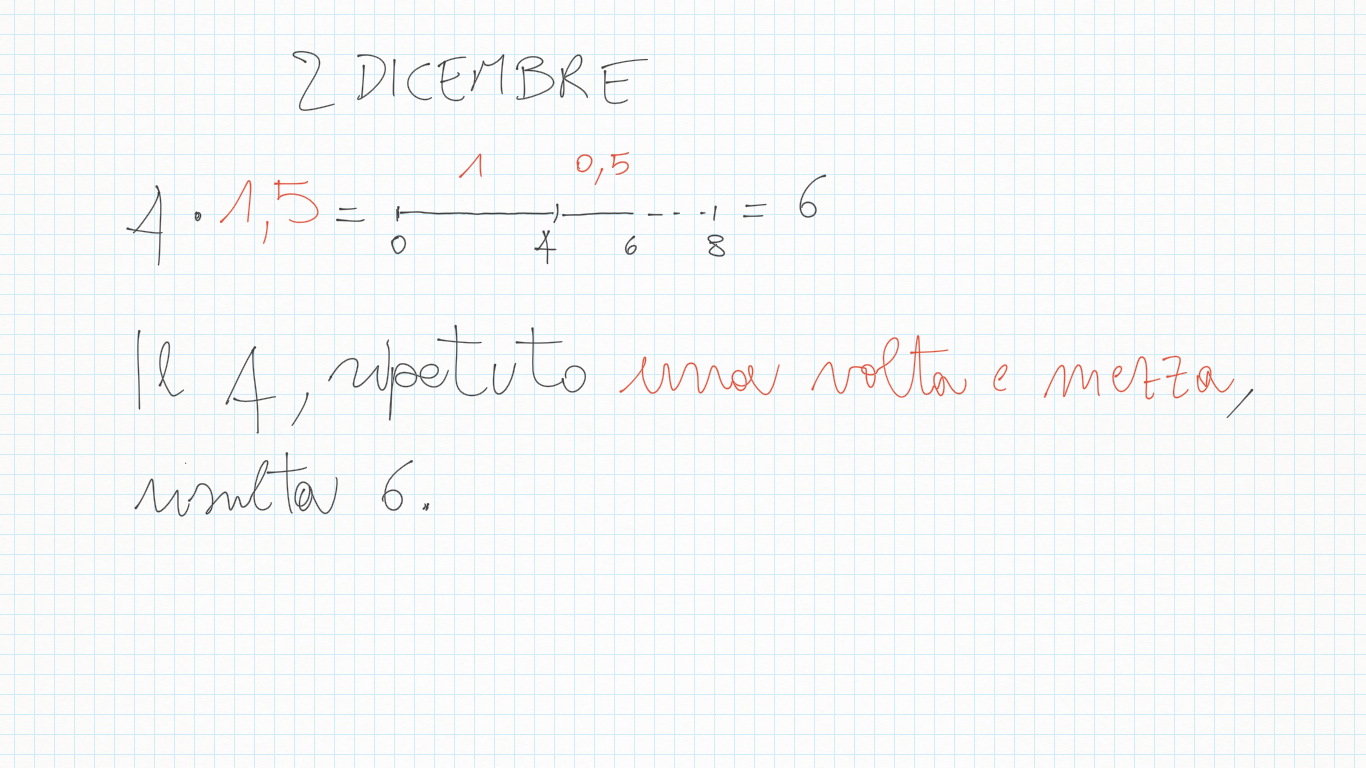 2 DICEMBRE
1 0,5
4 · 1,5 = = 6
0 4 6 8
Il 4, ripetuto una volta e mezza,
risulta 6.